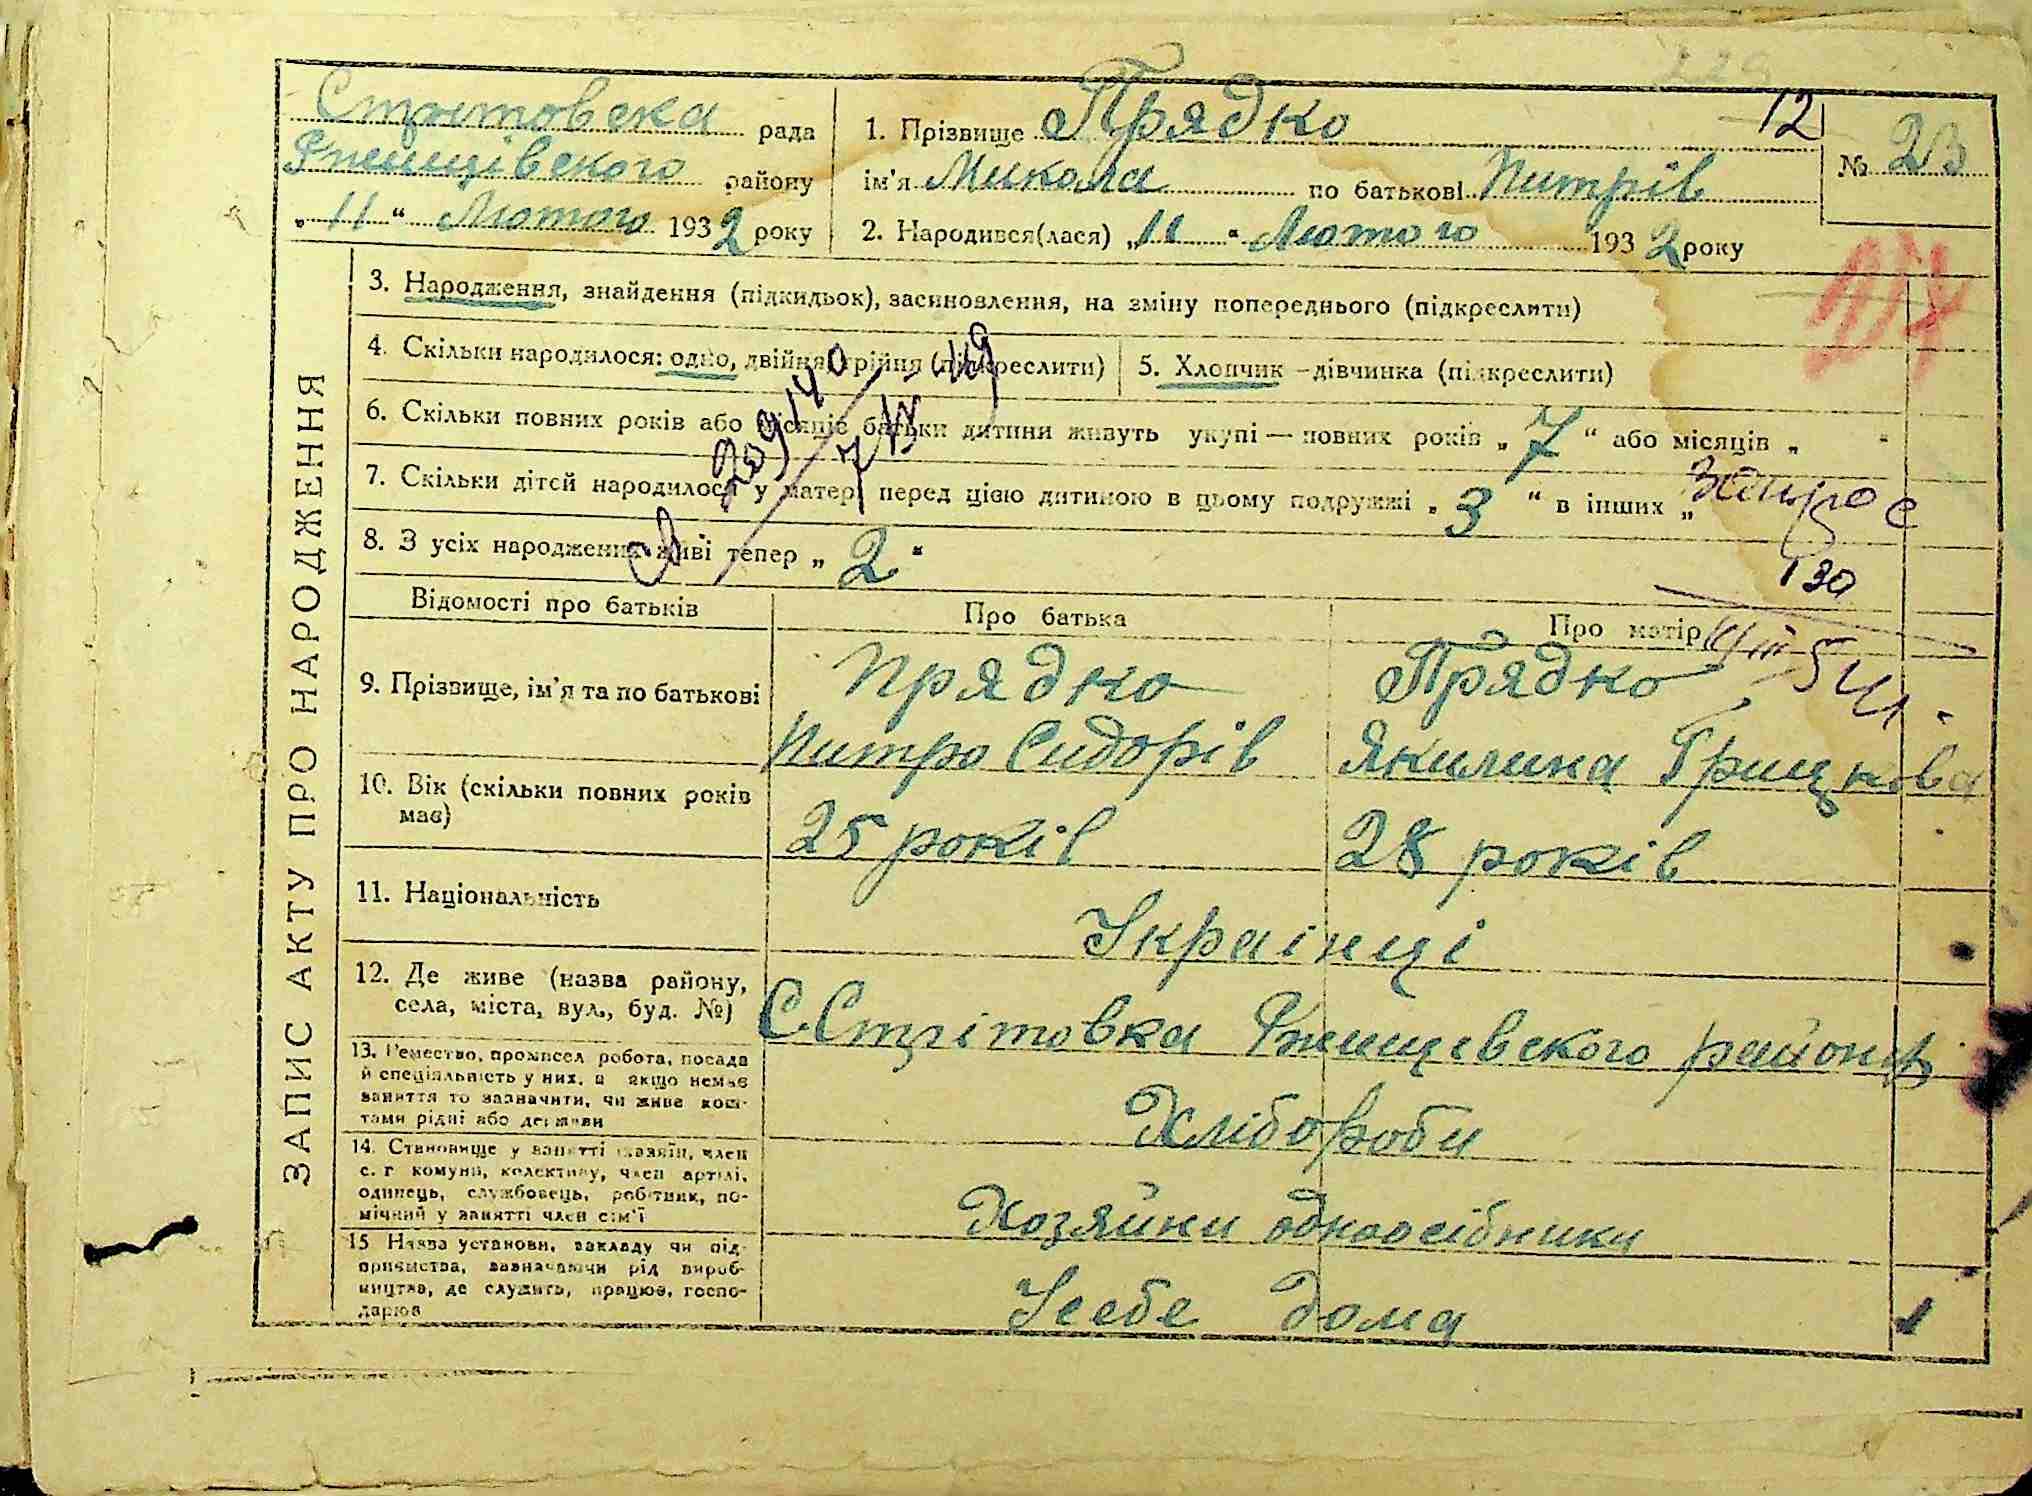 Стритовска рада
Ржищівского району
„11“ Лютого 1932 року
1. Прізвище Прядко
12
№ 23
ім'я Микола по батькові Питрів
2. Народився(лася) „11“ Лютого 1932 року
ЗАПИС АКТУ ПРО НАРОДЖЕННЯ
3. Народження, знайдення (підкидьок), засиновлення, на зміну попереднього (підкреслити)
4. Скільки народилося: одно, двійня, трійня (підкреслити)
5. Хлопчик –дівчинка (підкреслити)
6. Скільки повних років або місяців батьки дитини живуть укупі — повних років „7“ або місяців „ “
7. Скільки дітей народилося у матері перед цією дитиною в цьому подружжі „3“ в інших „
8. З усіх народжених живі тепер „2“
130
Відомості про батьків
Про батька
Про матір
9. Прізвище, ім'я та по батькові
Прядко
Питро Сидорів
Прядко
Якилина Грицкова
10. Вік (скільки повних років має)
25 років
28 років
11. Національність
Українці
12. Де живе (назва району, села, міста, вул., буд. №)
С. Стрітовка Ржищевского району
13. Ремество, промисел робота, посада
й спеціяльність у них, а якщо немає
заняття то зазначити, чи живе кош-
тами рідні або держави
Хлібороби
14. Становище у занятті хазяїн, член
с. г комуни, колективу, член артілі,
одинець, службовець, робітник, по-
мічний у занятті член сім'ї
Хозяйни одноосібники
15 Назва установи, закладу чи під-
приємства, зазначаючи рід вироб-
ництва, де служить, працює, госпо-
дарює
У себе дома